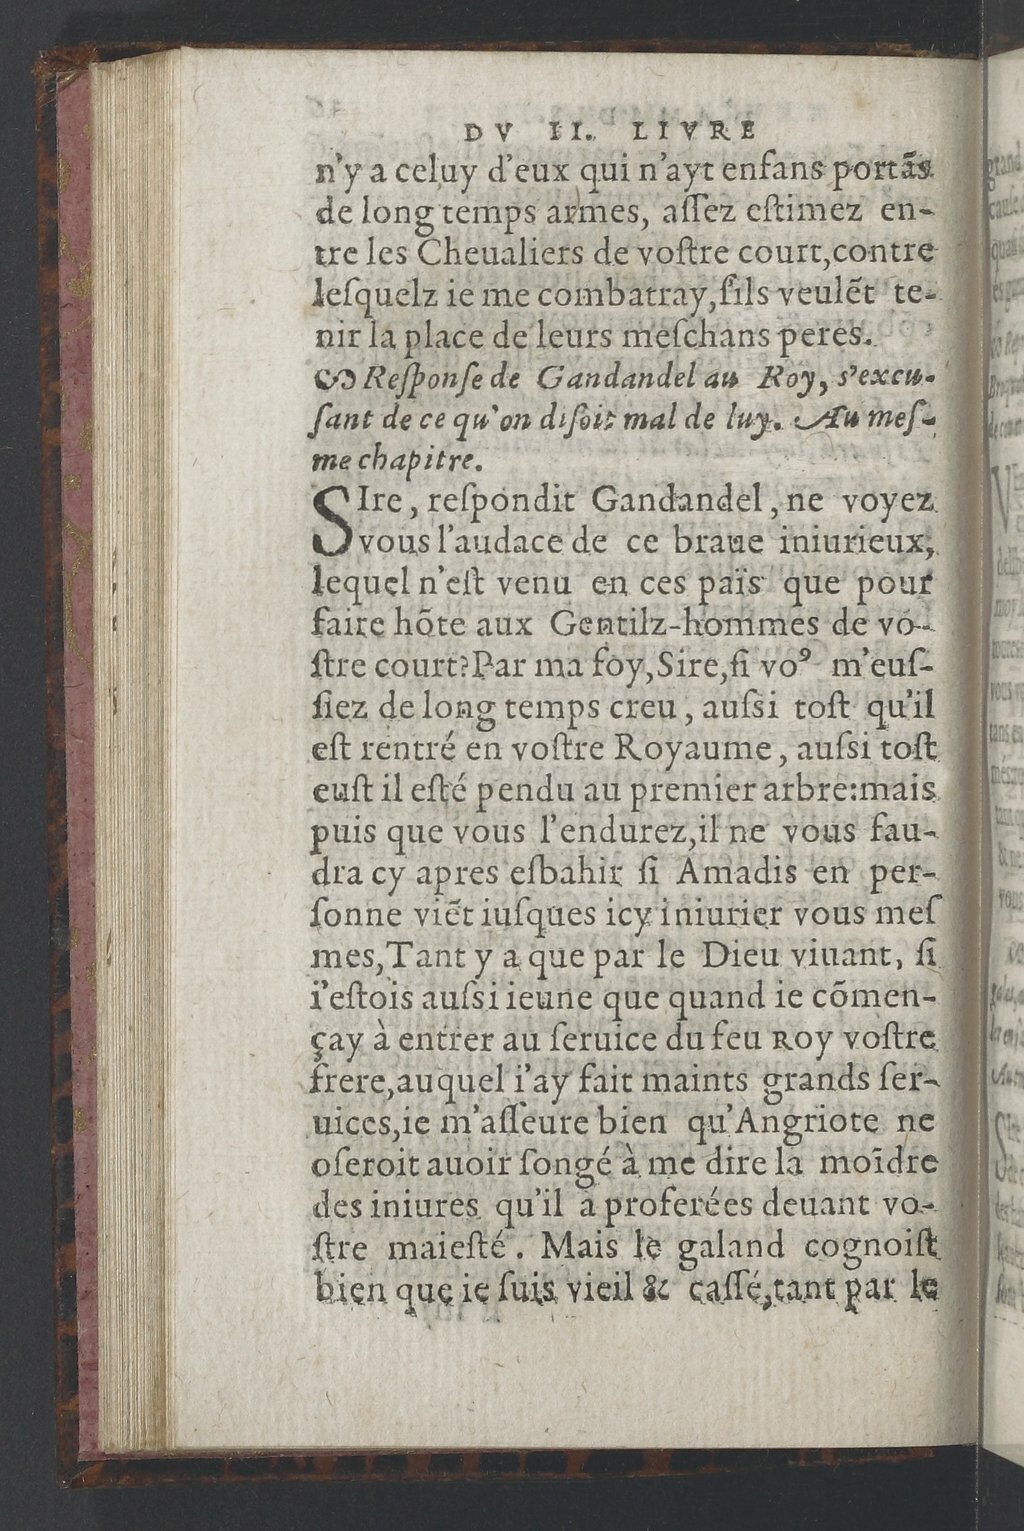 DV II. LIVRE
n'y a celuy d'eux qui n'ayt enfans portãs
de long temps armes, aſſez eſtimez en-
tre les Cheualiers de voſtre court,contre
leſquelz ie me combatray,ſils veulẽt te-
nir la place de leurs meſchans peres.
Reſponſe de Gandandel au Roy, s'excu-
ſant de ce qu'on diſoit mal de luy. Au meſ-
me chapitre.
SIre, reſpondit Gandandel, ne voyez
vous l'audace de ce braue iniurieux,
lequel n'eſt venu en ces païs que pour
faire hõte aux Gentilz-hommes de vo-
ſtre court?Par ma foy,Sire,ſi voꝰ m'euſ-
ſiez de long temps creu, auſsi toſt qu'il
eſt rentré en voſtre Royaume, auſsi toſt
euſt il eſté pendu au premier arbre:mais
puis que vous l'endurez,il ne vous fau-
dra cy apres eſbahir ſi Amadis en per-
ſonne viẽt iuſques icy iniurier vous meſ
mes,Tant y a que par le Dieu viuant, ſi
i'eſtois auſsi ieune que quand ie cõmen-
çay à entrer au ſeruice du feu Roy voſtre
frere,auquel i'ay fait maints grands ſer-
uices,ie m'aſſeure bien qu'Angriote ne
oſeroit auoir ſongé à me dire la moĩdre
des iniures qu'il a proferées deuant vo-
ſtre maieſté. Mais le galand cognoiſt
bien que ie ſuis vieil & caſſé,tant par le